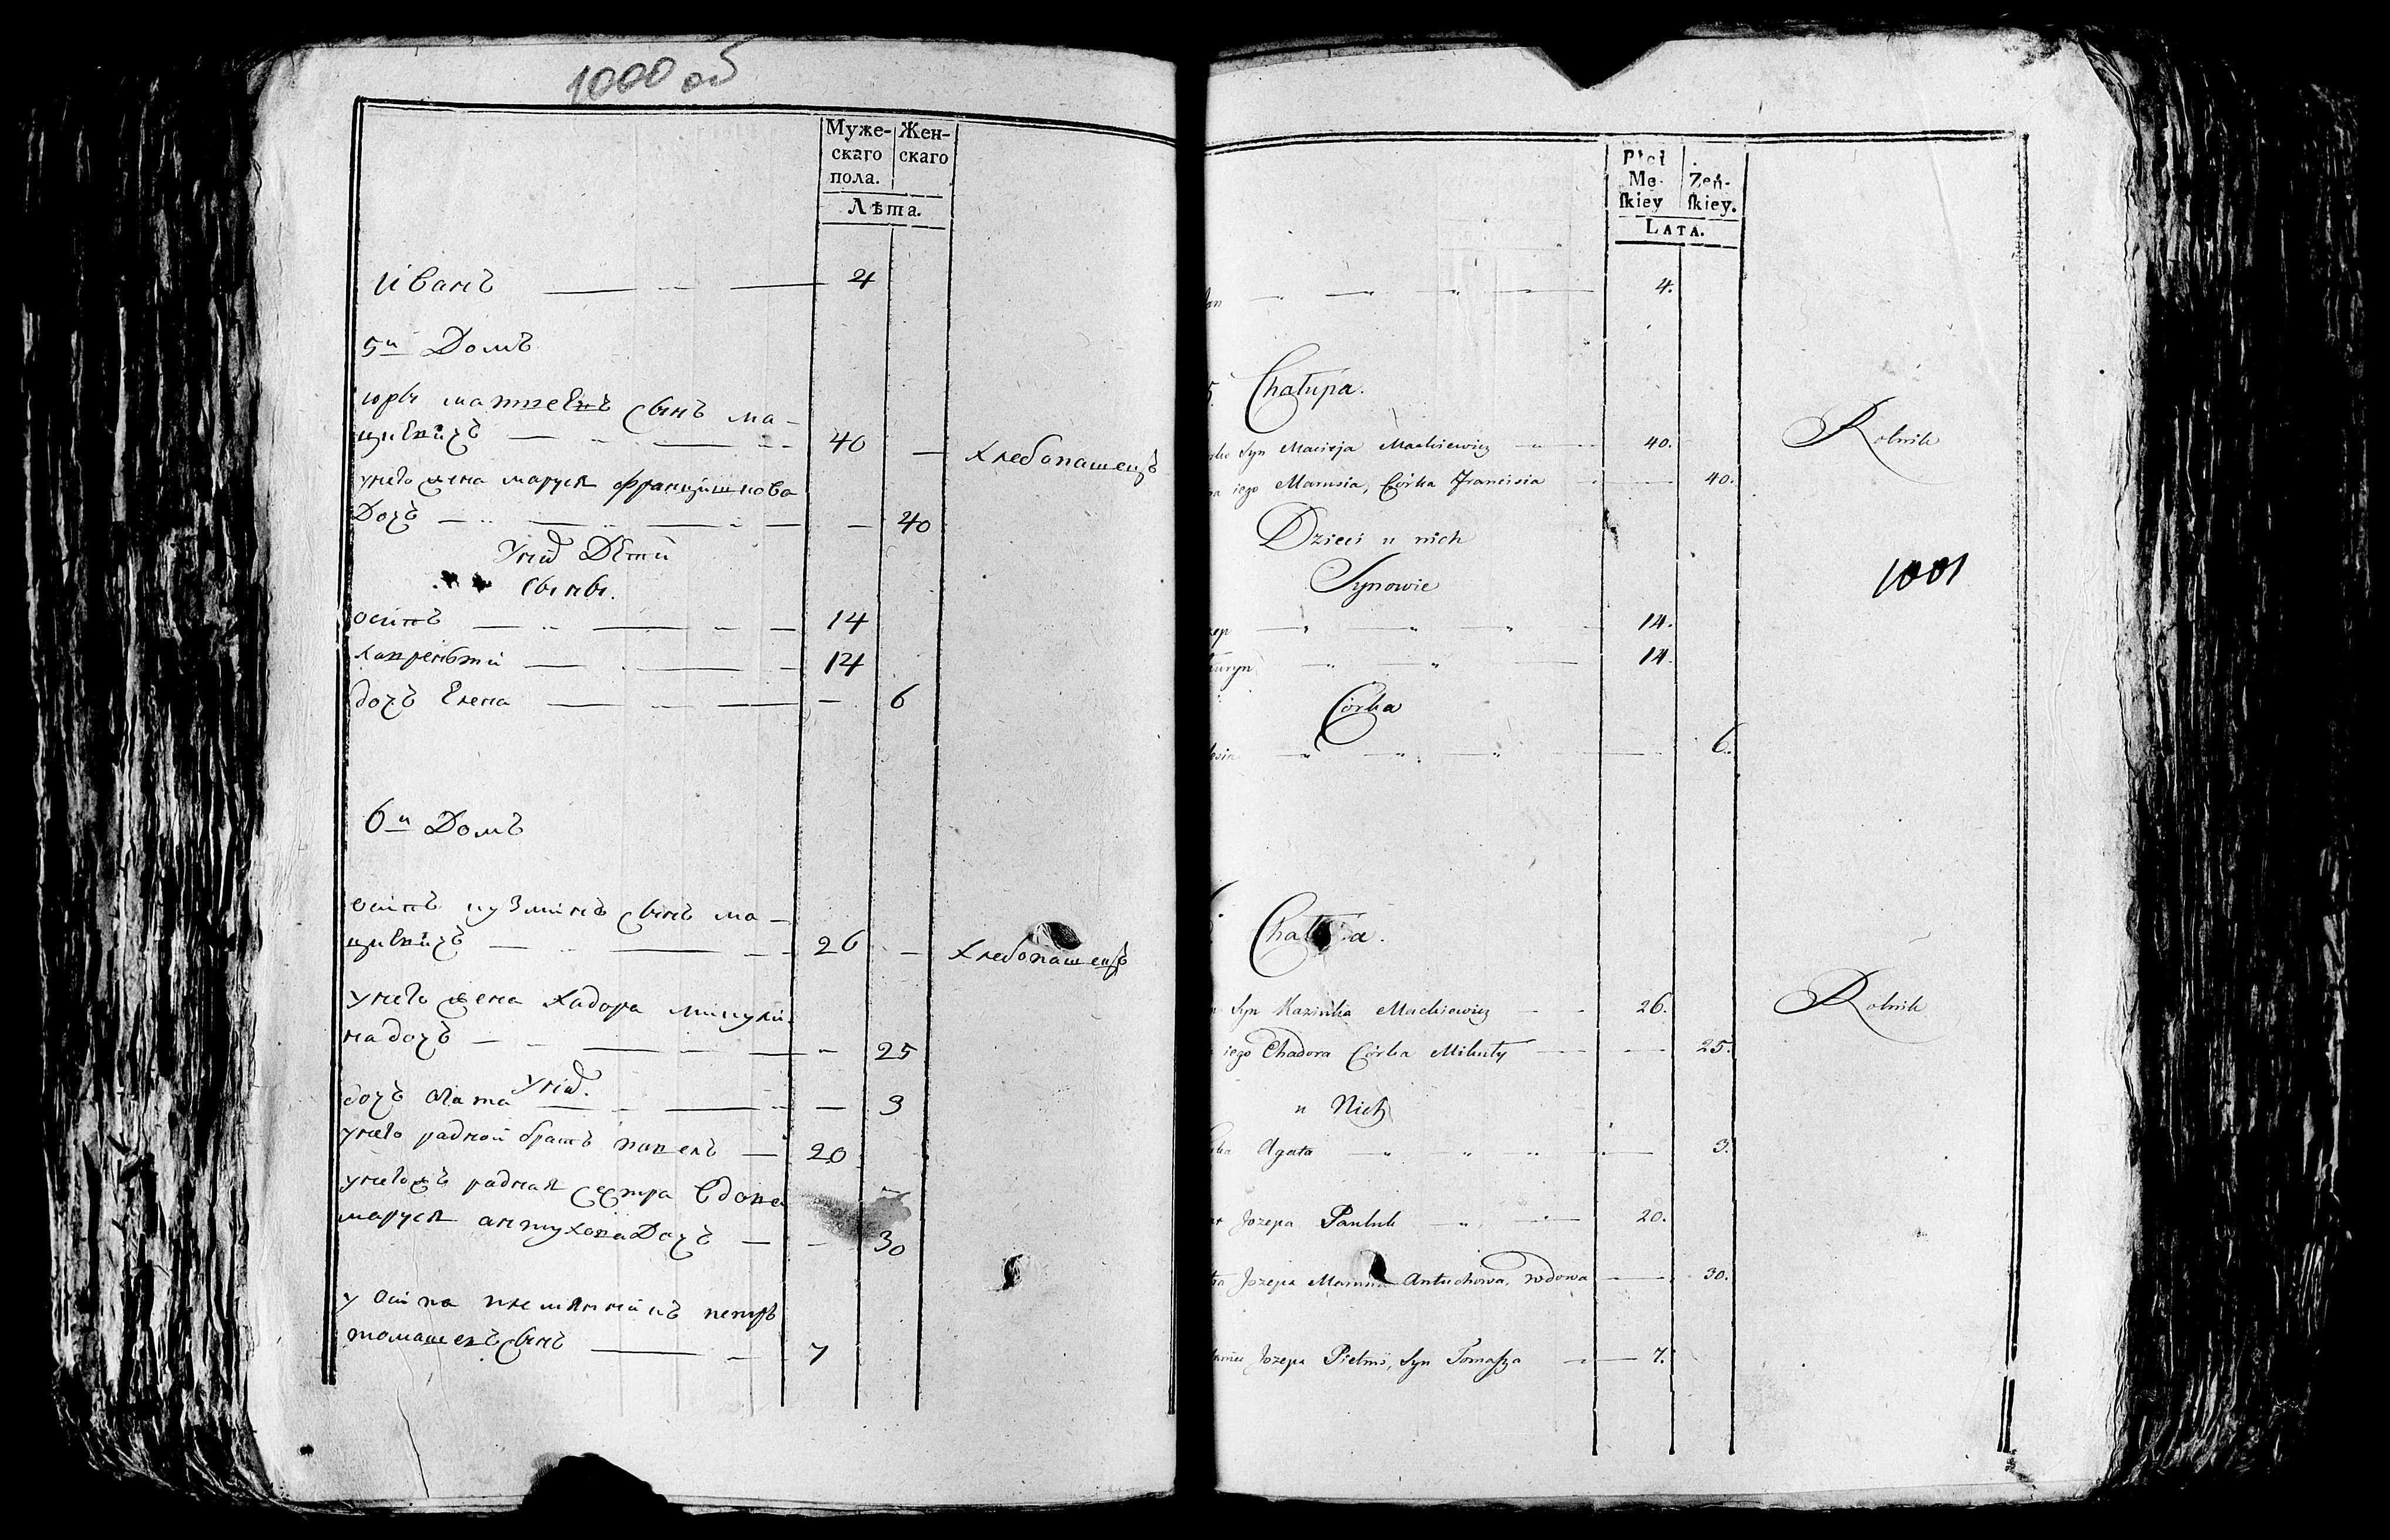 1000 об
Муже- Жен-
скаго скаго
пола.
Лѣта.
Иванъ 4
5й Домъ
юры матпеевъ сынъ ма-
цкевичъ 40 — хлебопашецъ
унего жена маруся францишкова
Дочь — 40
Унихъ Дети
сыны.
осипъ 14
лапрентий 14
дочь Елена — 6
6й Домъ
осипъ кузминъ сынъ ма-
цкевичъ 26 — хлебопашецъ
унего жена хадора микули-
на дочь — 25
Унихъ
дочь агата — 3
унего радной братъ павелъ — 20
унегожъ радная сестра вдова
маруся антухова Дочь — 30
у осипа племянникъ петръ
томашевъ сынъ 7
Płci
Mę- Żeń-
ſkiey ſkiey.
LATA.
4.
5. Chałupa.
Syn Macieja Mackiewicz 40. Rolnik
iego Marusia, Córka Franciszka 40.
Dzieci u nich
Synowie
14.
14.
1001
Córka
6.
Chałupa.
Syn Kaźmiérza Mackiewicz 26. Rolnik
iego Chadora Córka Mikuły 25.
u Nich
Agata 3.
Jozepa Pawluk 20.
Jozepa Marusia Antuchowa, wdowa 30.
Jozepa Pietruś, Syn Tomaſza 7.